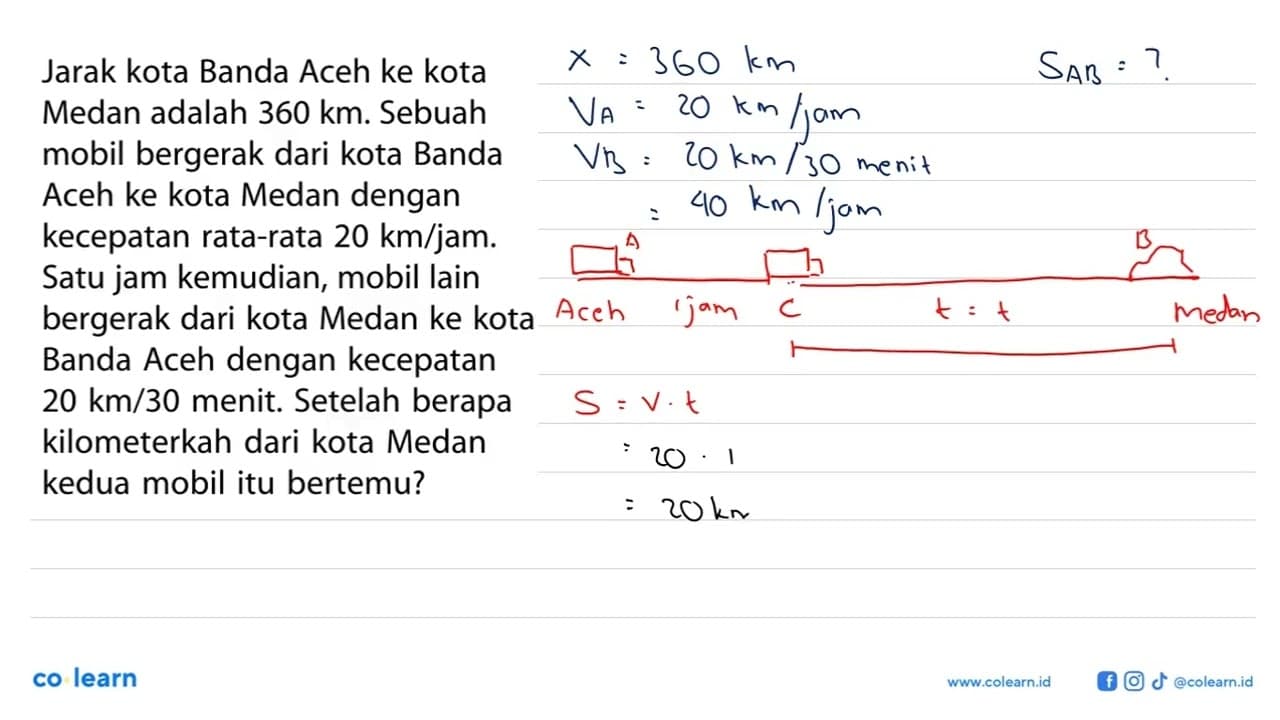 Jarak kota Banda Aceh ke kota
Medan adalah 360 km. Sebuah
mobil bergerak dari kota Banda
Aceh ke kota Medan dengan
kecepatan rata-rata 20 km/jam.
Satu jam kemudian, mobil lain
bergerak dari kota Medan ke kota
Banda Aceh dengan kecepatan
20 km/30 menit. Setelah berapa
kilometerkah dari kota Medan
kedua mobil itu bertemu?
x = 360 km
SAB = ?
VA = 20 km/jam
VB = 20 km/30 menit
= 40 km/jam
A
B
Aceh 1 jam C t = t Medan
S = v . t
= 20 . 1
= 20 km
co learn
www.colearn.id
@colearn.id